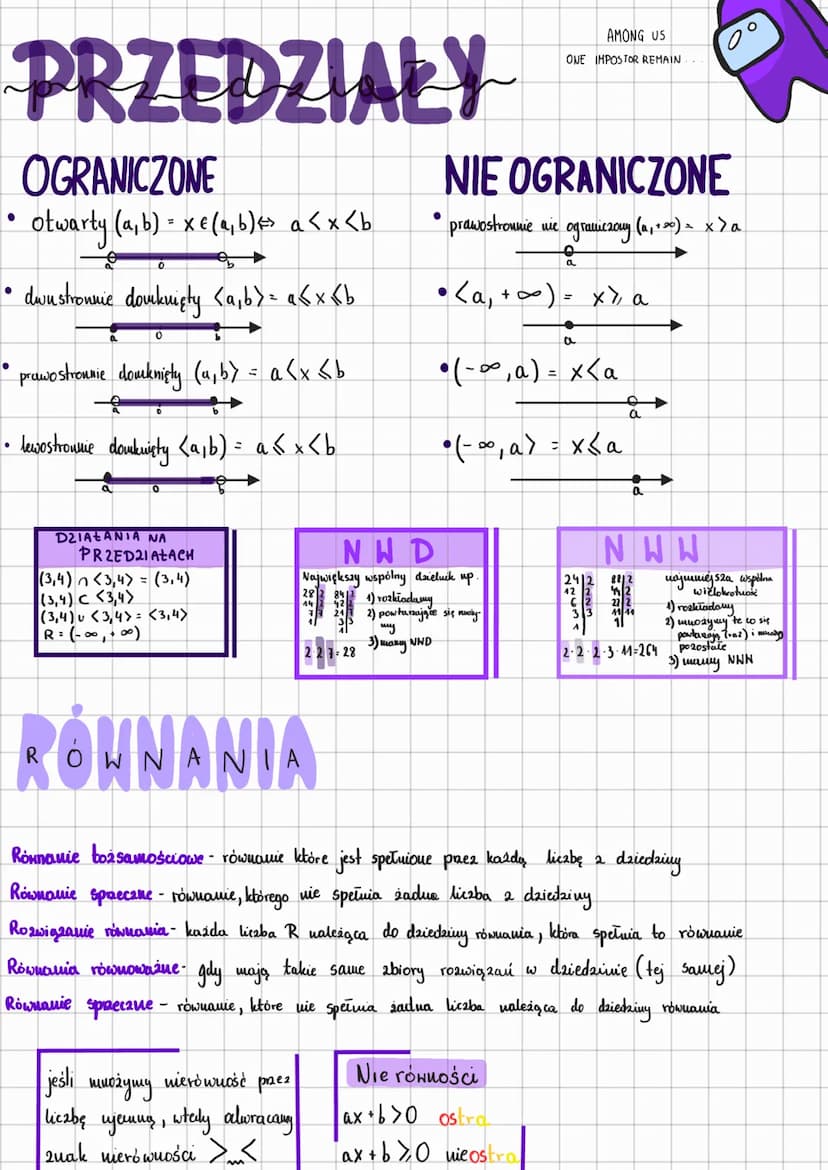 PRZEDZIAŁY
przedziały
AMONG US
ONE IMPOSTOR REMAIN...
OGRANICZONE
• otwarty (a,b) = x∈(a,b)⇔ a<x<b
a 0 b
• dwustronnie domknięty <a,b> = a⩽x⩽b
a 0 b
• prawostronnie domknięty (a,b> = a<x⩽b
a 0 b
• lewostronnie domknięty <a,b) = a⩽x<b
a 0 b
NIE OGRANICZONE
• prawostronnie nie ograniczony (a,+∞) = x>a
a
• <a, +∞) = x⩾a
a
• (-∞,a) = x<a
a
• (-∞,a> = x⩽a
a
DZIAŁANIA NA
PRZEDZIAŁACH
(3,4) ∩ <3,4> = (3,4)
(3,4) ⊂ <3,4>
(3,4) ∪ <3,4> = <3,4>
R = (-∞,+∞)
NWD
Największy wspólny dzielnik np.
28|2 84|2
14|2 42|2
7|7 21|7
1| 3|3
1|
1) rozkładamy
2) powtarzające się mnoży-
my
3) mamy NWD
2·2·7=28
NWW
24|2 88|2
12|2 44|2
6|2 22|2
3|3 11|11
1| 1|
najmniejsza wspólna
wielokrotność
1) rozkładamy
2) mnożymy te co się
powtarzają (raz) i
pozostałe
3) mamy NWW
2·2·2·3·11=264
RÓWNANIA
Równanie tożsamościowe - równanie które jest spełnione przez każdą liczbę z dziedziny
Równanie sprzeczne - równanie, którego nie spełnia żadna liczba z dziedziny
Rozwiązanie równania - każda liczba R należąca do dziedziny równania, która spełnia to równanie
Równania równoważne - gdy mają takie same zbiory rozwiązań w dziedzinie (tej samej)
Równanie sprzeczne - równanie, które nie spełnia żadna liczba należąca do dziedziny równania
jeśli mnożymy nierówność przez
liczbę ujemną, wtedy odwracamy
znak nierówności > <
Nie równości
ax+b>0 ostra
ax+b⩾0 nieostra